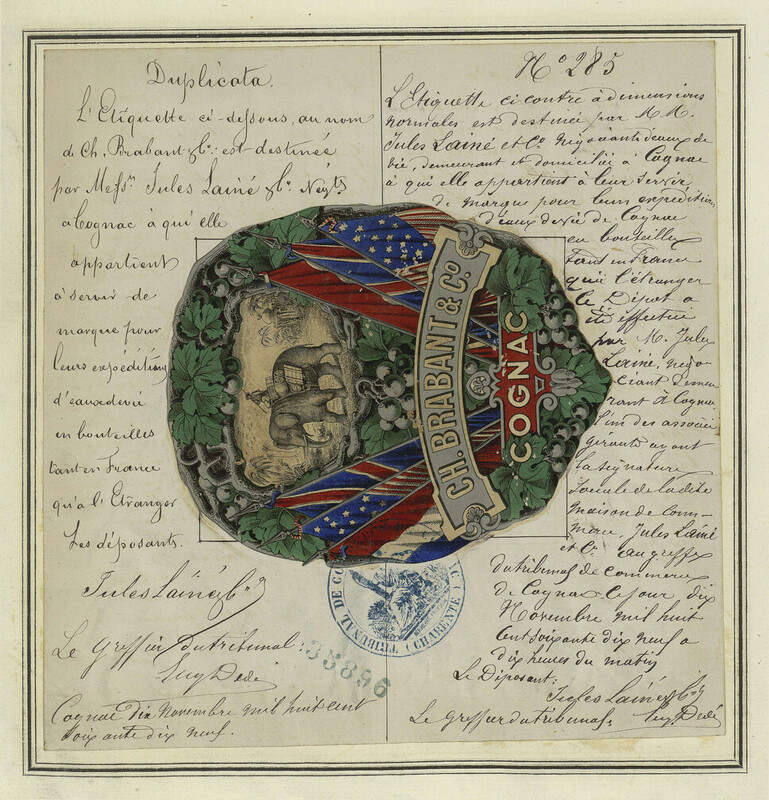 Duplicata.
L'Etiquette ci-dessous, au nom
de Ch. Brabant & Co. est destinée
par Messrs Jules Lainé & Co. Négts
à Cognac à qui elle
appartient
à servir de
marque pour
leurs expéditions
d'eaux de vie
en bouteilles
tant en France
qu'à l'Etranger
Les déposants.
Jules Lainé & Co
Le greffier du tribunal:
Cognac dix Novembre mil huit cent
soixante dix neuf.
No 285
L'Etiquette ci contre à dimensions
normales est destinée par M.M.
Jules Lainé et Co négociants d'eaux de
vie, demeurant et domiciliés à Cognac
à qui elle appartient à leur servir
de marque pour leurs expéditions
d'eaux de vie de Cognac
en bouteilles
tant en France
qu'à l'étranger
Ce Dépot a
été effectué
par M. Jules
Lainé, négo-
ciant demeu
rant à Cognac
l'un des associés
gerants ayant
la signature
sociale de la dite
maison de com-
merce, Jules Lainé
et Co. au greffe
du tribunal de commerce
de Cognac ce jour dix
Novembre mil huit
cent soixante dix neuf à
dix heures du matin
Le Déposant:
Jules Lainé & Co
Le greffier du tribunal:
CH. BRABANT & Co.
COGNAC
TRIBUNAL DE CO
AC
(CHARENTE)
33896